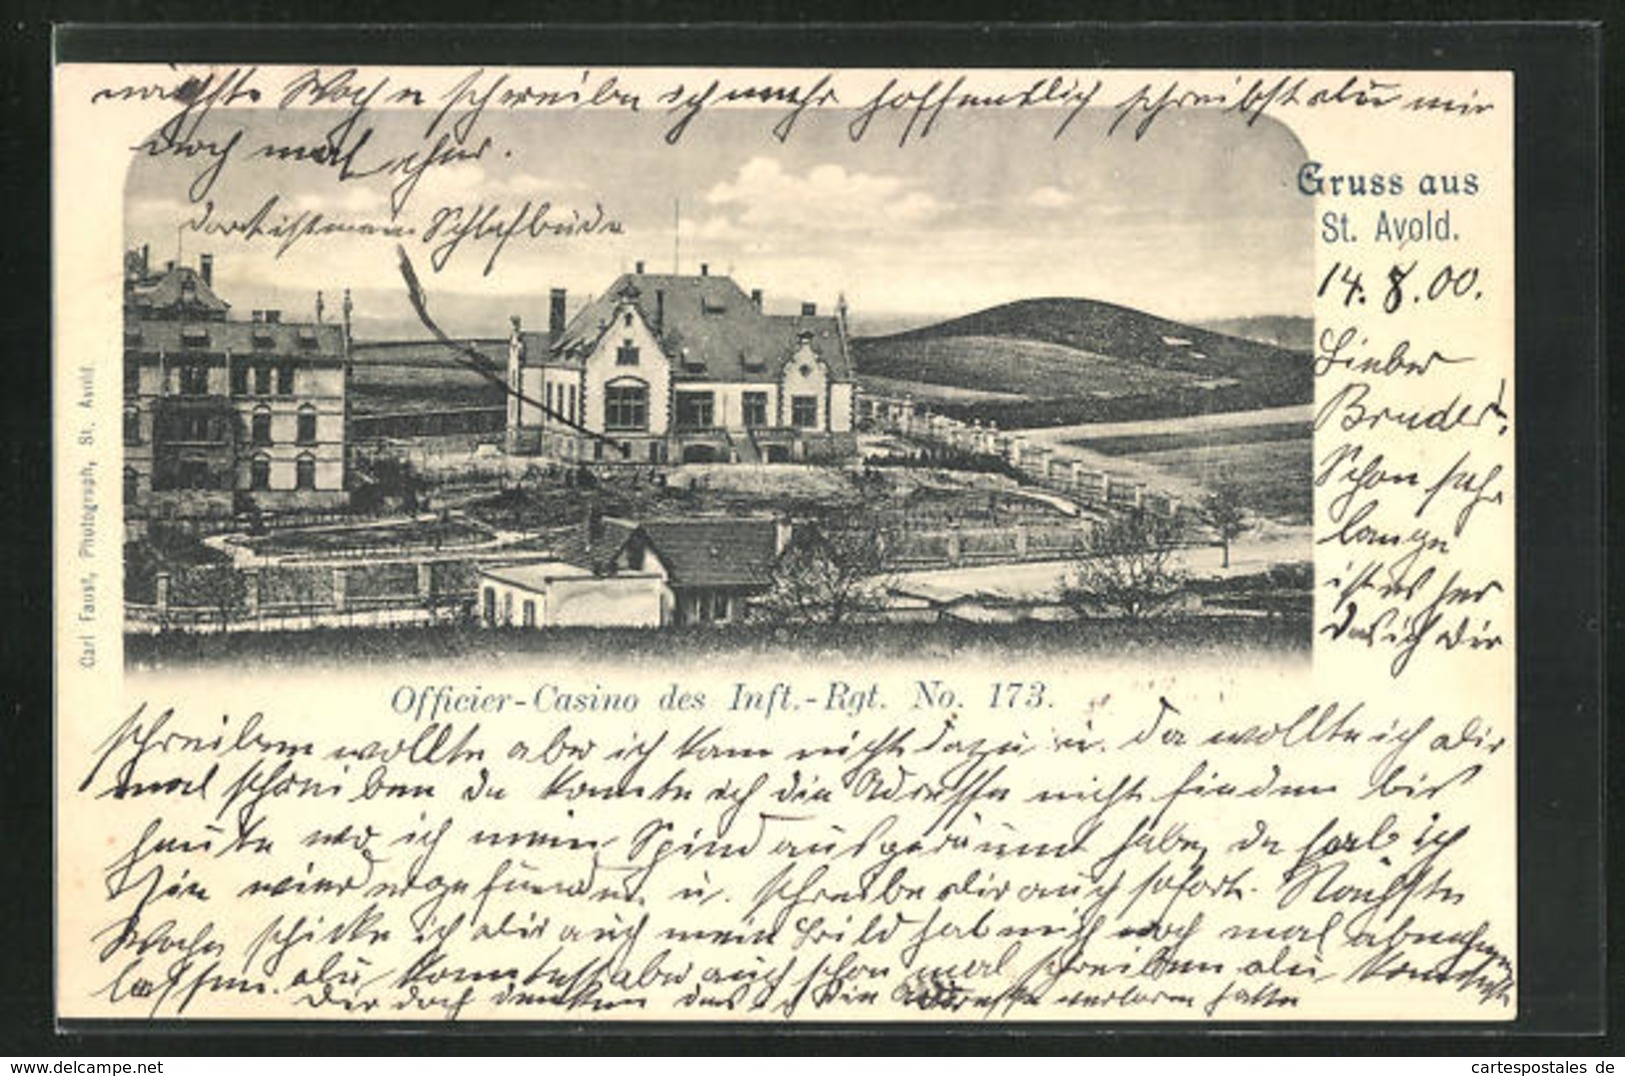 nächste Woche schreibe ich mehr hoffendlich schreibst du mir
doch mal eher.
dort ist mein Schlafbude
Gruss aus
St. Avold.
14. 8. 00.
Lieber
Bruder,
Schon sehr
lange
ist es her
das ich dir
Carl Faust, Photograph, St. Avold.
Officier-Casino des Inft.-Rgt. No. 173.
schreiben wollte aber ich kam nicht dazu u. da wollte ich dir
mal schreiben da konnte ich die Adresse nicht finden bis
heute wo ich mein Spind ausgeräumt habe, da hab ich
sie wieder gefunden u. schreibe dir auch sofort. Nächste
Woche schicke ich dir auch mein Bild hab mich noch mal abnehmen
lassen. du konntest aber auch schon mal schreiben du konntest
Dir doch denken das ich die Adresse verloren hatte
cartespostales.de